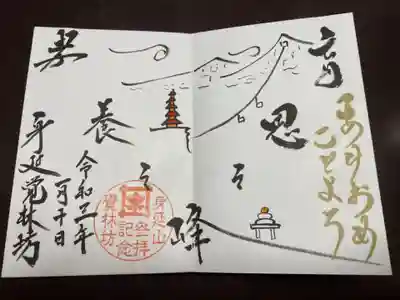 育恩之峰
あけおめ
ことよろ
孝養之
令和三年
一月十日
身延覚林坊
身延山
参拝
記念
覚林坊